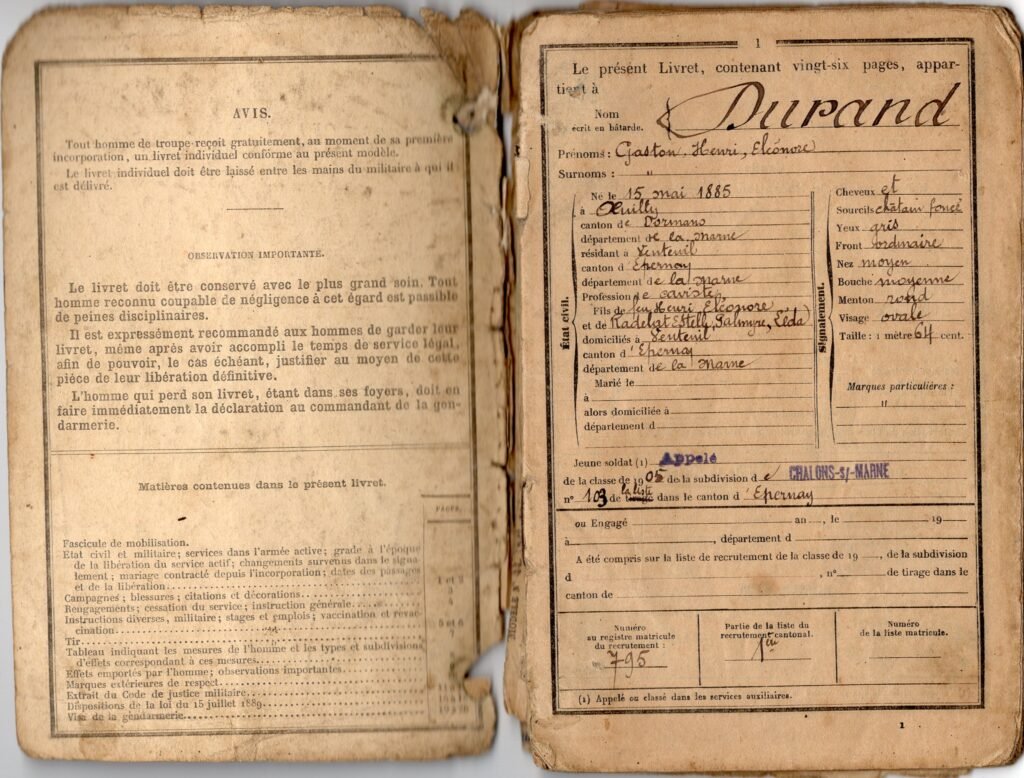 AVIS.
Tout homme de troupe reçoit gratuitement, au moment de sa première
incorporation, un livret individuel conforme au présent modèle.
Le livret individuel doit être laissé entre les mains du militaire à qui il
est délivré.
OBSERVATION IMPORTANTE.
Le livret doit être conservé avec le plus grand soin. Tout
homme reconnu coupable de négligence à cet égard est passible
de peines disciplinaires.
Il est expressément recommandé aux hommes de garder leur
livret, même après avoir accompli le temps de service légal,
afin de pouvoir, le cas échéant, justifier au moyen de cette
pièce de leur libération définitive.
L'homme qui perd son livret, étant dans ses foyers, doit en
faire immédiatement la déclaration au commandant de la gen-
darmerie.
Matières contenues dans le présent livret.
PAGES.
Fascicule de mobilisation.
Etat civil et militaire; services dans l'armée active; grade à l'époque
de la libération du service actif; changements survenus dans le signa-
lement; mariage contracté depuis l'incorporation; dates des passages
et de la libération. 1 et 2
Campagnes; blessures; citations et décorations. 3
Rengagements; cessation du service; instruction générale. 4
Instructions diverses, militaire; stages et emplois; vaccination et revac- 5 et 6
cination. 7
Tir.
Tableau indiquant les mesures de l'homme et les types et subdivisions
d'effets correspondant à ces mesures.
Effets emportés par l'homme; observations importantes.
Marques extérieures de respect.
Extrait du Code de justice militaire.
Dispositions de la loi du 15 juillet 1889.
Visa de la gendarmerie.
1
Le présent Livret, contenant vingt-six pages, appar-
tient à
Nom
écrit en bâtarde.
Durand
Prénoms : Gaston, Henri, Eléonore
Surnoms : "
État civil.
Né le 15 mai 1885
à Œuilly
canton de Dormans
département de la Marne
résidant à Venteuil
canton d'Epernay
département de la Marne
Profession de caviste
Fils de feu Henri, Eléonore
et de Radelat Estelle, Palmyre, Elda
domiciliés à Venteuil
canton d'Epernay
département de la Marne
Marié le
à
alors domiciliée à
département d
Signalement.
Cheveux et
Sourcils châtain foncé
Yeux gris
Front ordinaire
Nez moyen
Bouche moyenne
Menton rond
Visage ovale
Taille : 1 mètre 64 cent.
Marques particulières :
"
Jeune soldat (1) Appelé
de la classe de 1905 de la subdivision de CHALONS-s/-MARNE
n° 103 de la liste dans le canton d'Epernay
ou Engagé an , le 19
à , département d
A été compris sur la liste de recrutement de la classe de 19 , de la subdivision
d , n° de tirage dans le
canton de
Numéro
au registre matricule
du recrutement :
795
Partie de la liste du
recrutement cantonal.
1ère
Numéro
de la liste matricule.
(1) Appelé ou classé dans les services auxiliaires.
1